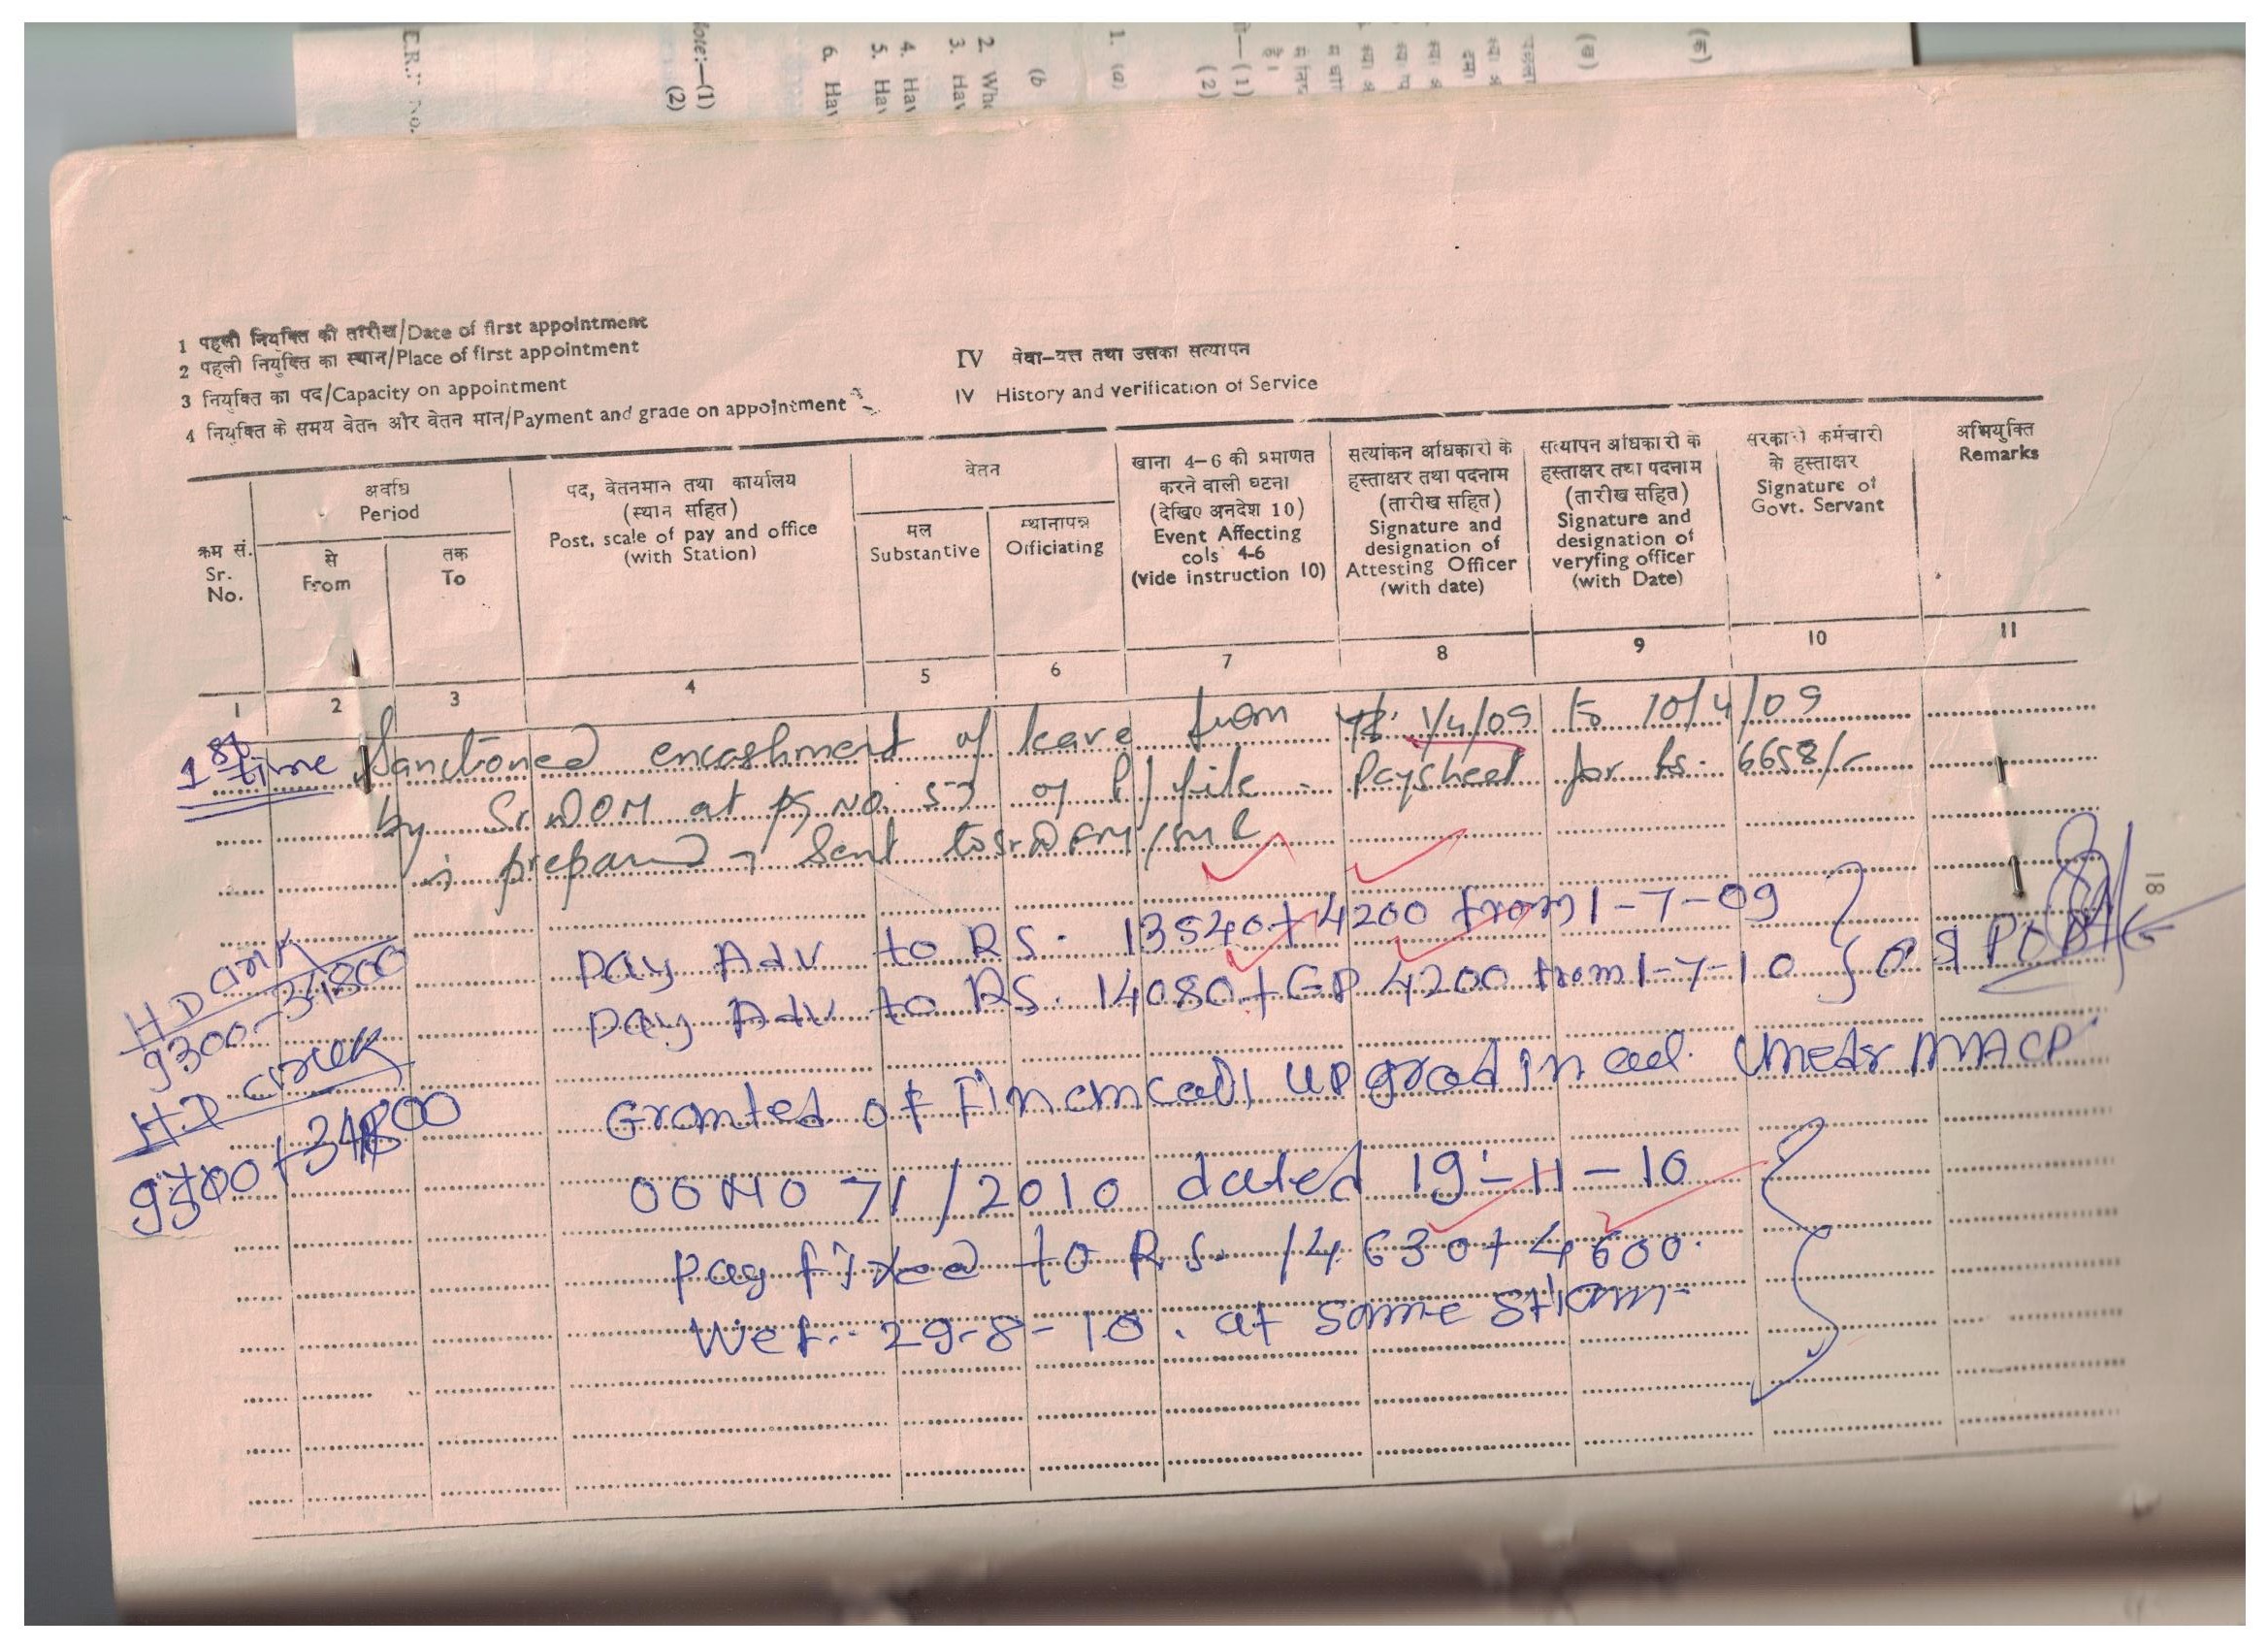 E.R.:
Note:—(1)
(2)
6. Hav
5. Hav
4. Hav
3. Hav
2. Whe
(b
1. (a)
(2)
(1)
1 पहली नियुक्ति की तारीख/Date of first appointment
2 पहली नियुक्ति का स्थान/Place of first appointment
3 नियुक्ति का पद/Capacity on appointment
4 नियुक्ति के समय वेतन और वेतन मान/Payment and grade on appointment
IV सेवा-वृत्त तथा उसका सत्यापन
IV History and verification of Service
क्रम सं.
Sr.
No.
अवधि
Period
से
From
तक
To
पद, वेतनमान तथा कार्यालय
(स्थान सहित)
Post, scale of pay and office
(with Station)
वेतन
मूल
Substantive
स्थानापन्न
Officiating
खाना 4-6 की प्रमाणत
करने वाली घटना
(देखिए अनदेश 10)
Event Affecting
cols 4-6
(vide instruction 10)
सत्यांकन अधिकारी के
हस्ताक्षर तथा पदनाम
(तारीख सहित)
Signature and
designation of
Attesting Officer
(with date)
सत्यापन अधिकारी के
हस्ताक्षर तथा पदनाम
(तारीख सहित)
Signature and
designation of
veryfing officer
(with Date)
सरकारी कर्मचारी
के हस्ताक्षर
Signature of
Govt. Servant
अभियुक्ति
Remarks
1 2 3 4 5 6 7 8 9 10 11
1st time Sanctioned encashment of leave from 1/4/09 to 10/4/09
by Sr. DOM at PS NO. 57 of P/file - Paysheet for Rs. 6658/-
is prepared & Sent to Sr. DFM/
Pay Adv to RS. 13540+4200 from 1-7-09
Pay Adv to RS. 14080+GP 4200 from 1-7-10
18
9300-34800
9300+34800
Granted of Financeal upgrad in MACP
OO NO 71/2010 dated 19-11-10
Pay fixed to R.S. 14630+4600.
Wef. 29-8-10. at same